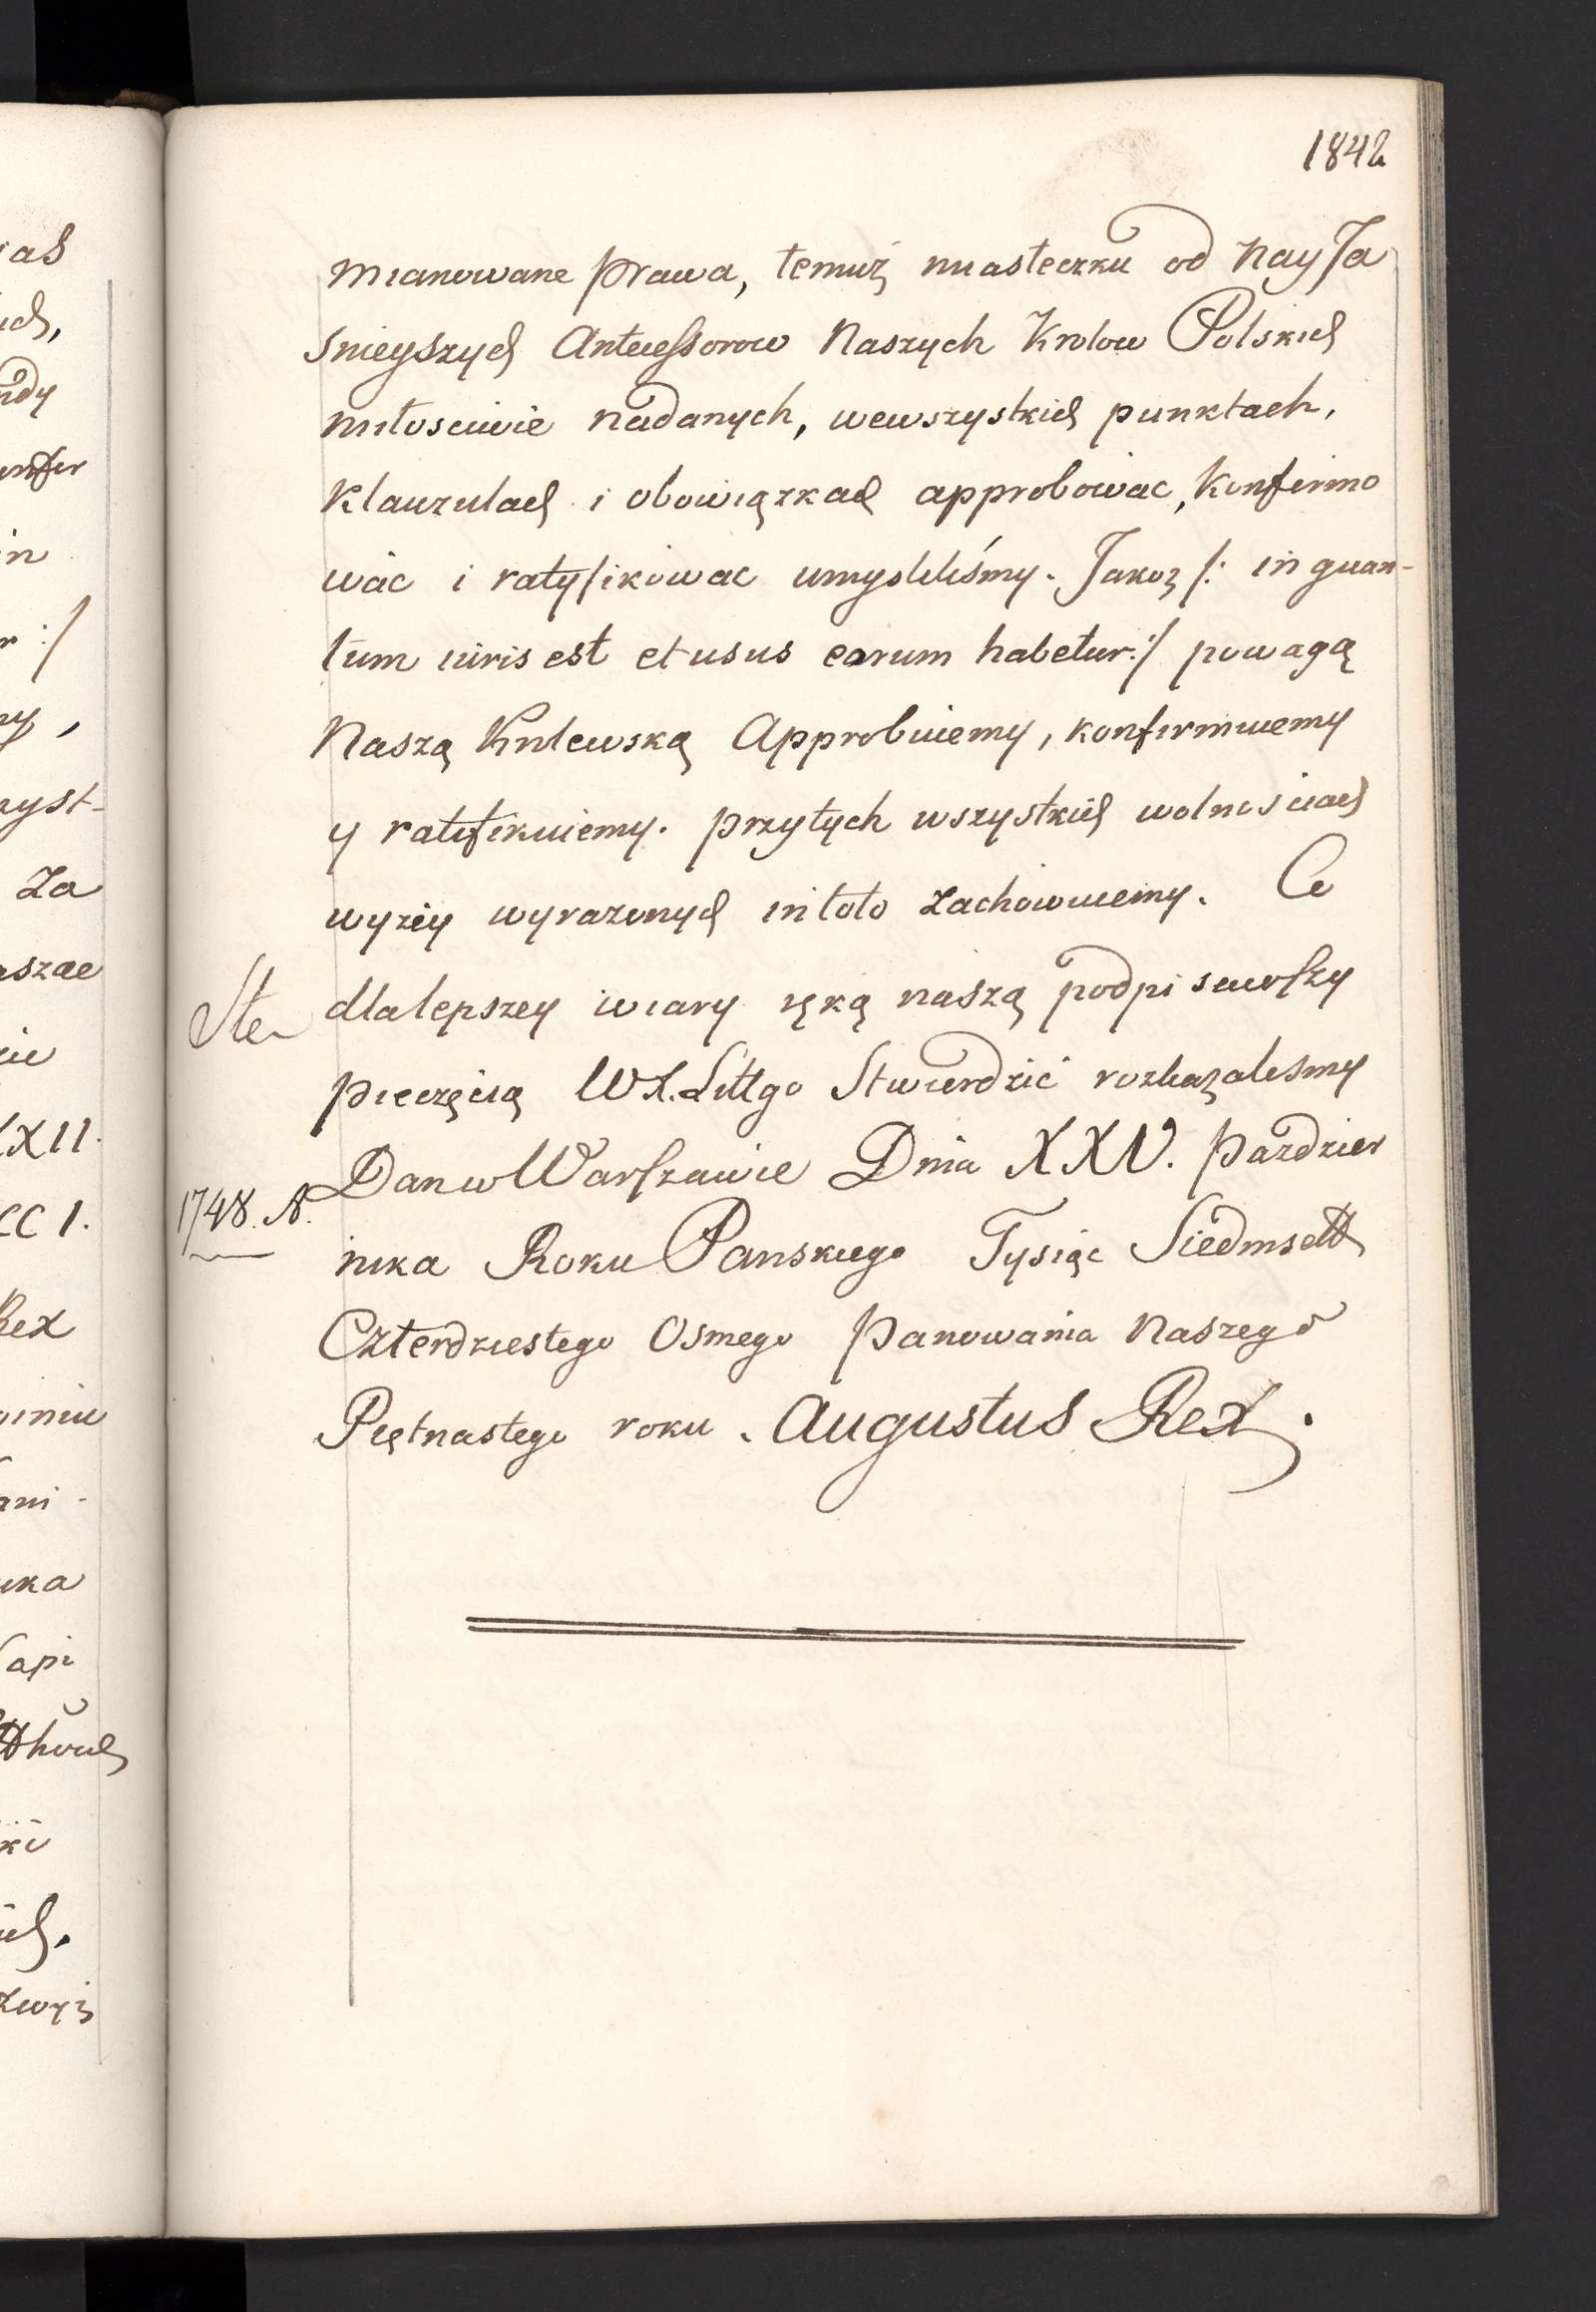 1842
mianowane prawa, temuż miasteczku od NayJa
snieyszych Antecessorow Naszych Krolow Polskich
miłosciwie nadanych, wewszystkich punktach,
Klauzulach i obowiązkach approbowac, Konfirmo
wać i ratyfikować umyslelismy. Jakoż /: in quan-
tum iuris est et usus earum habetur:/ powagą
Naszą Krolewską Approbuiemy, konfirmuiemy
y ratifikuiemy. przytych wszystkich wolnosciach
wyżey wyrażonych in toto zachowuiemy. Co
Ste
dlalepszey wiary ręką naszą podpisawszy
pieczęcią WX.Littgo Stwierdzić rozkazalesmy
Dan w Warszawie Dnia XXV. Pazdzier
1748. N.
nika Roku Panskiego Tysiąc Siedmsett
Czterdziestego Osmego Panowania Naszego
Piętnastego roku. Augustus Rex.
as
ich,
ndy
in
r :/
ny,
zyst-
za
aszae
XXII.
CC I.
Rex
ani-
ika
api
ki
ich.
zwyż